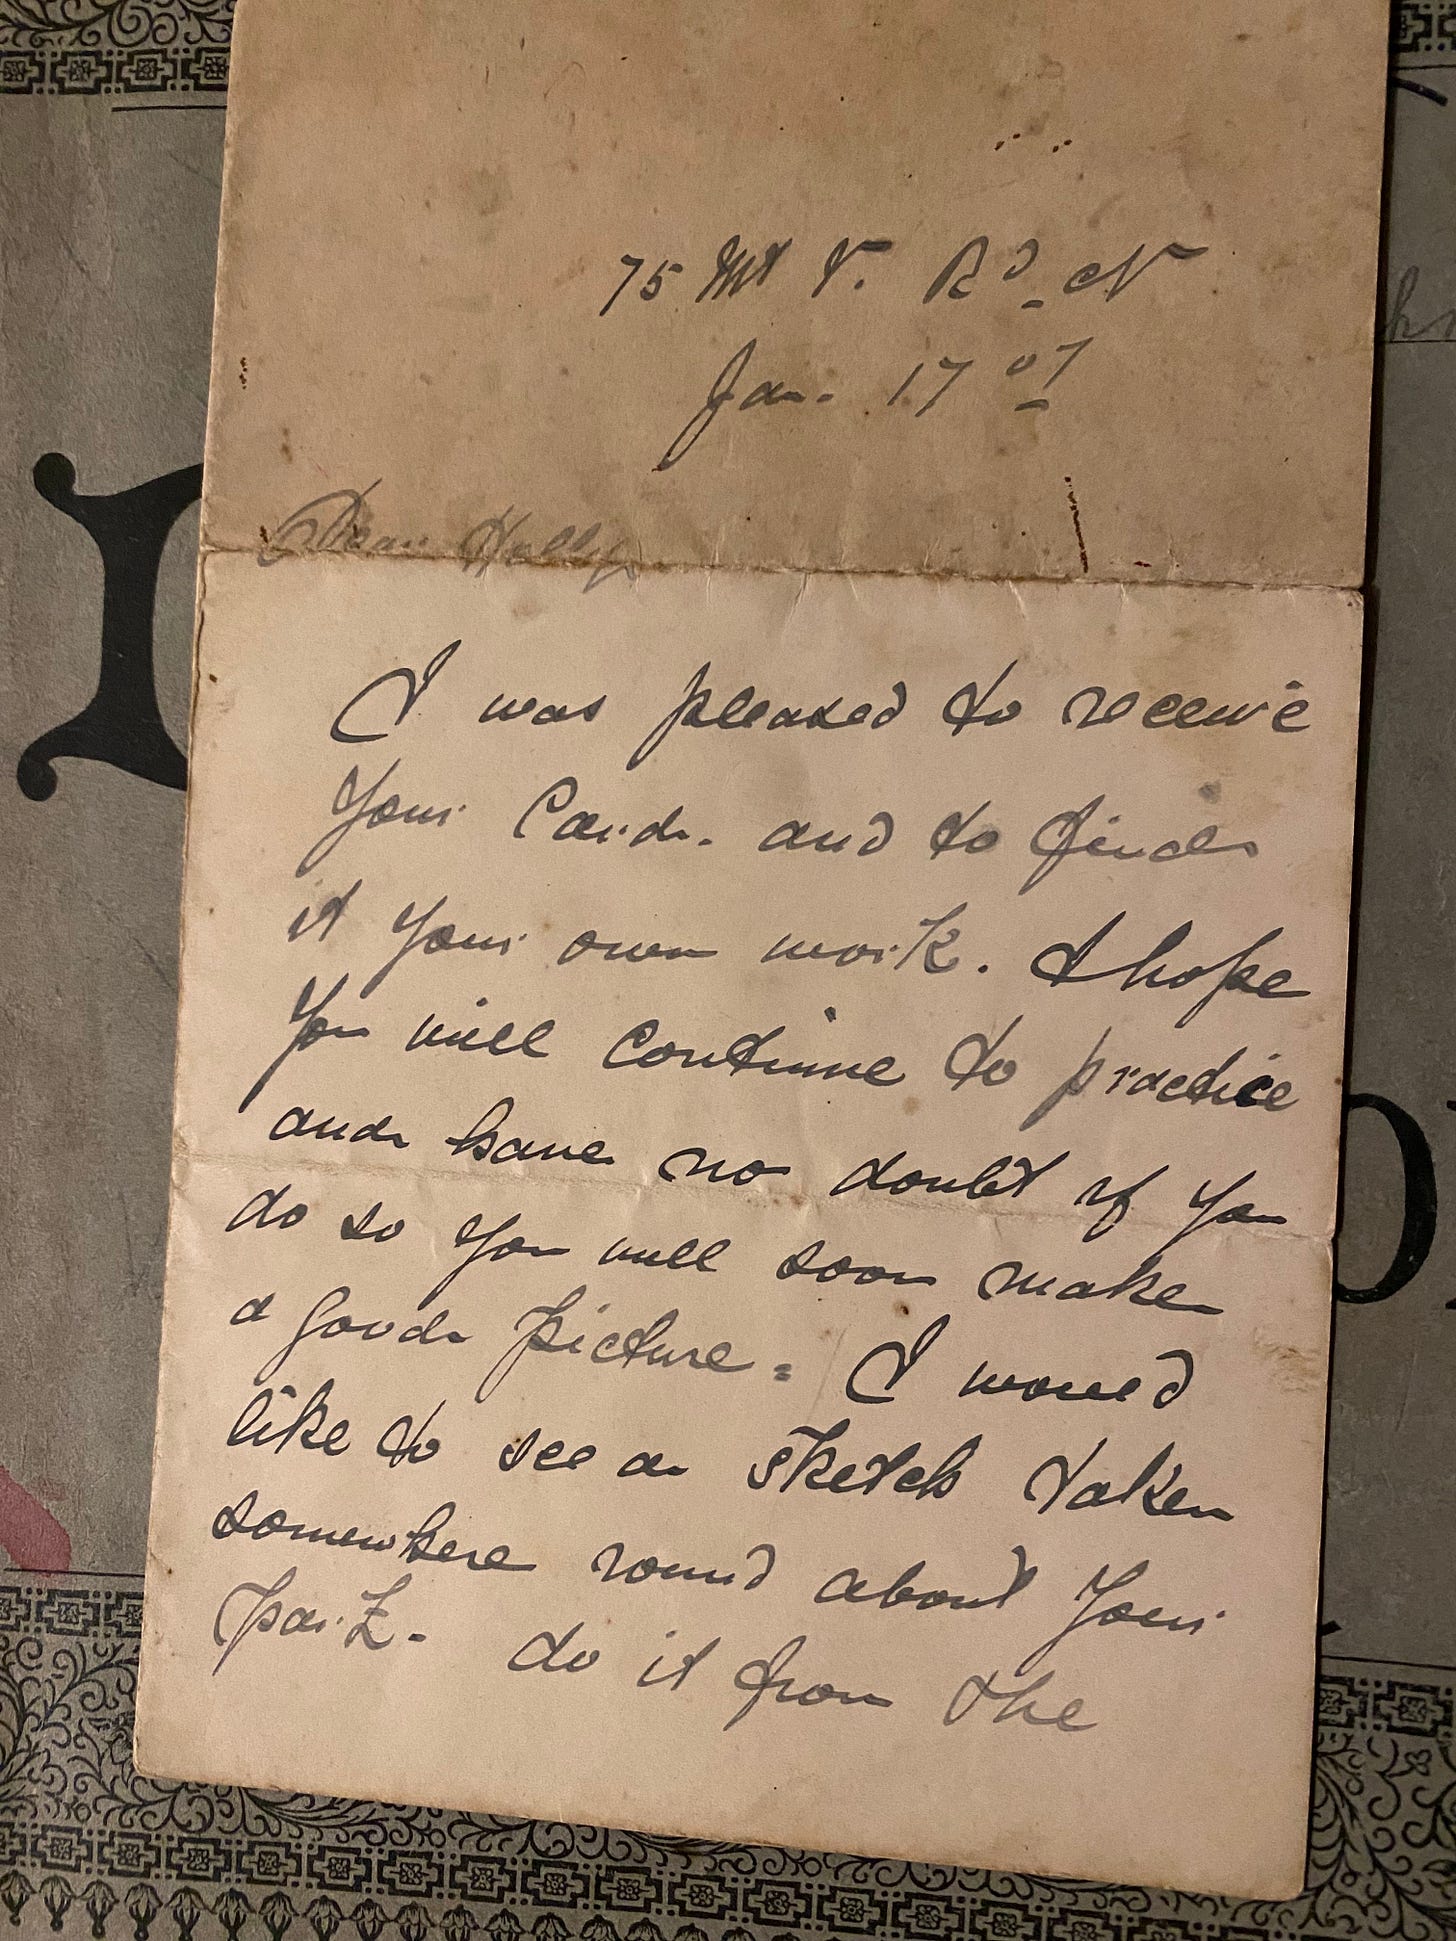 75 Mt V. Rd N
Jan. 17 07
Dear Holly
I was pleased to receive
your Card. and to find
it your own work. I hope
you will continue to practice
and have no doubt if you
do so you will soon make
a good picture. I would
like to see a sketch taken
somewhere round about your
park. do it from the